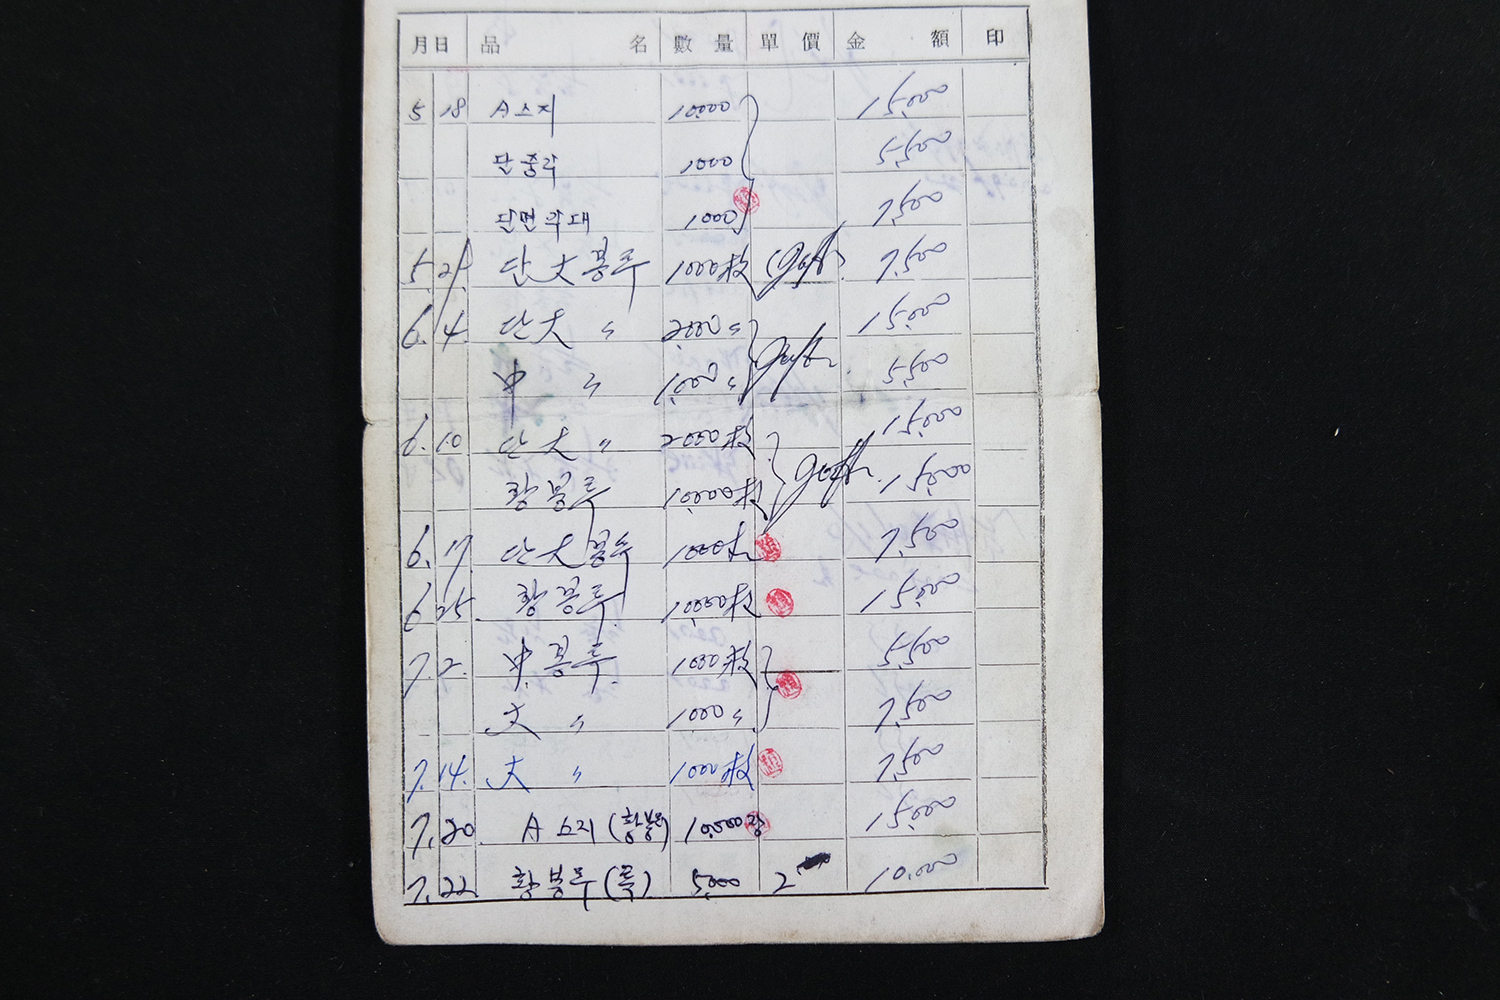 月日 品名 數量 單價 金額 印
5 18 A소지 10000 15,000
단중각 1000 5,500
단면각대 1000 7,500
5. 21 단大봉투 1000枚 7,500
6. 4. 단大 〃 2,000 〃 15,000
中 〃 1,000 〃 5,500
6. 10 단大 〃 2000枚 15,000
황봉투 10,000枚 15,000
6. 17 단大봉투 1000枚 7,500
6. 25. 황봉투 10,000枚 15,000
7. 2. 中봉투 1000枚 5,500
大 〃 1,000 〃 7,500
7. 14. 大 〃 1000枚 7,500
7. 20 A 소지 (황봉투) 10,000 15,000
7. 22 황봉투 5,000 2 10,000